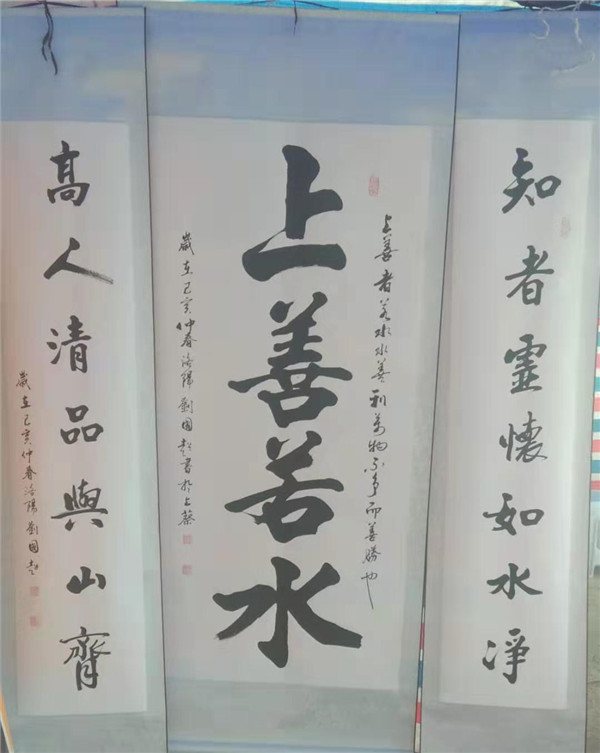 知者霊懷如水浄
上善者若水水善利萬物不争而善勝也
上善若水
歲在己亥仲春洛陽劉国書於上蔡
髙人清品與山齊
歲在己亥仲春洛陽劉国